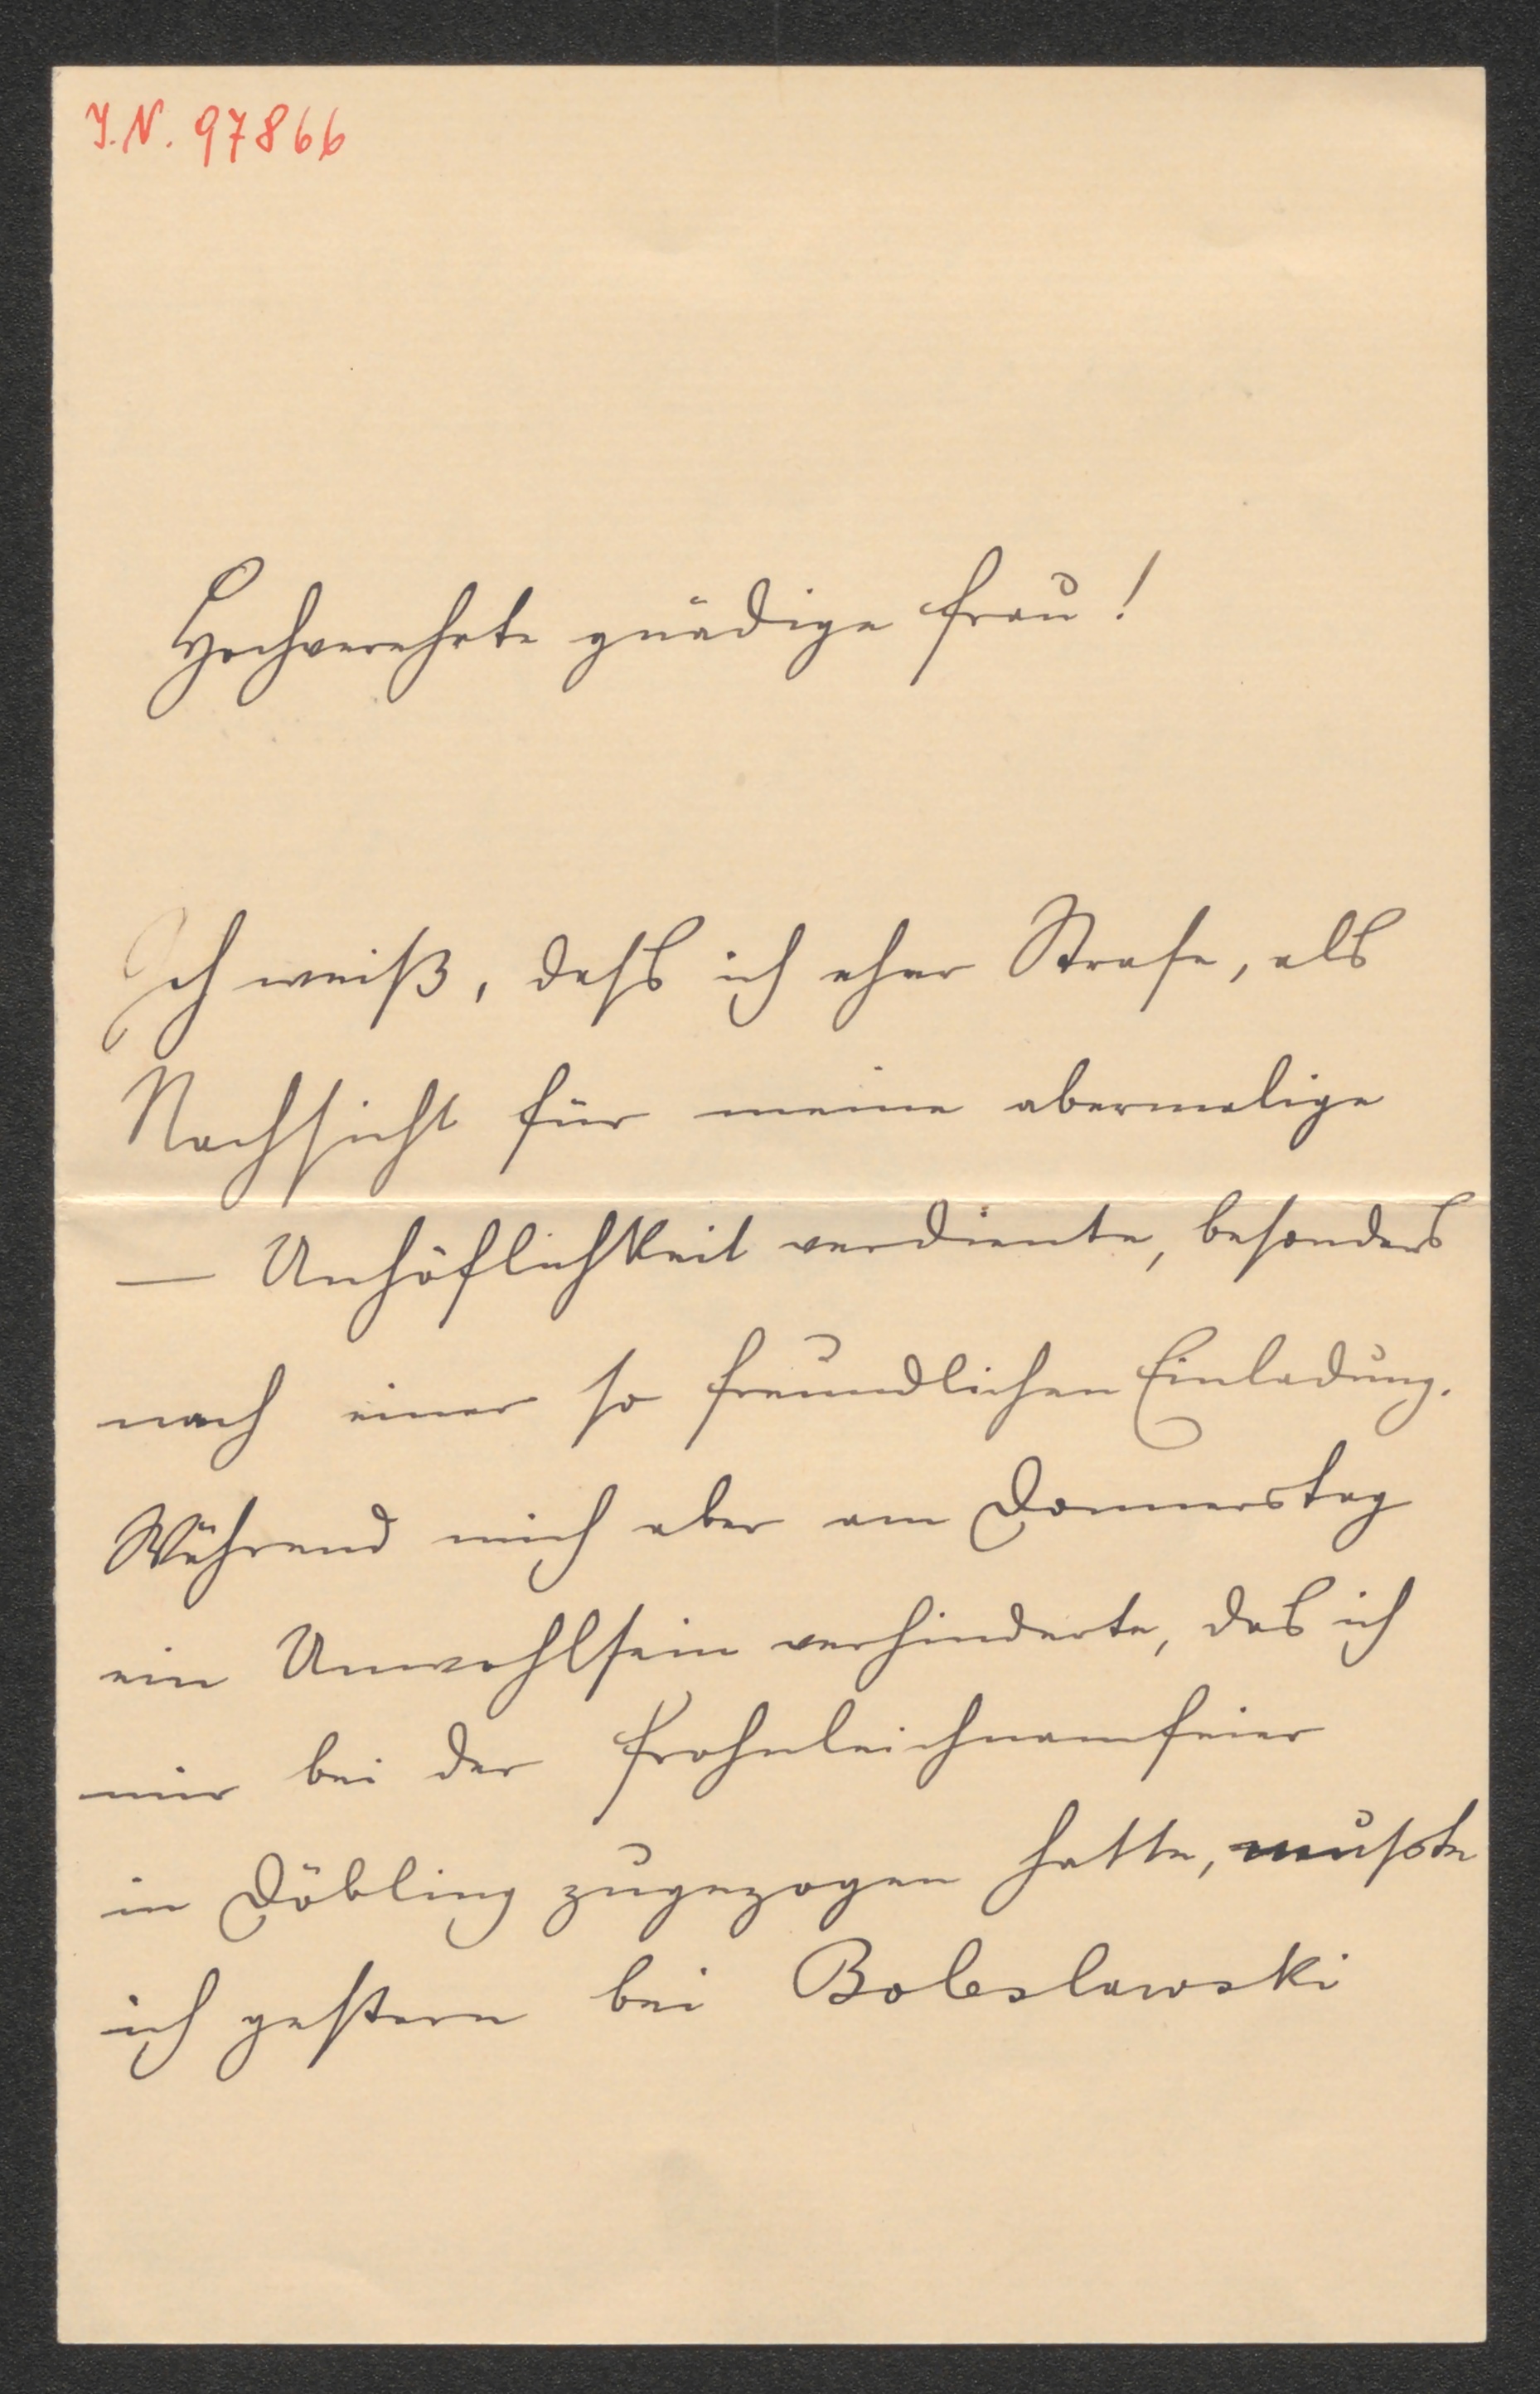 I.N. 97866
Hochverehrte gnädige Frau!
Ich weiß, dass ich eher Strafe, als
Nachsicht für meine abermalige
— Unhöflichkeit verdiente, besonders
nach einer so freundlichen Einladung.
Während mich aber am Donnerstag
ein Unwohlsein verhinderte, das ich
mir bei der Frohnleichnamfeier
in Döbling zugezogen hatte, mußte
ich gestern bei Boleslawski